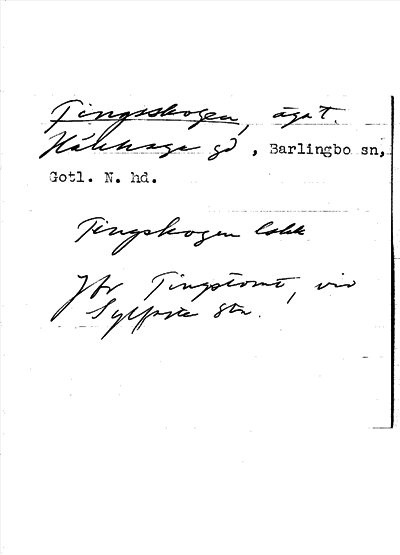 Tingsskogen, äga t.
Häkhaga gd, Barlingbo sn,
Gotl. N. hd.
Tingskogen
Jfr Tingstomt, vid
Sylfste stn.